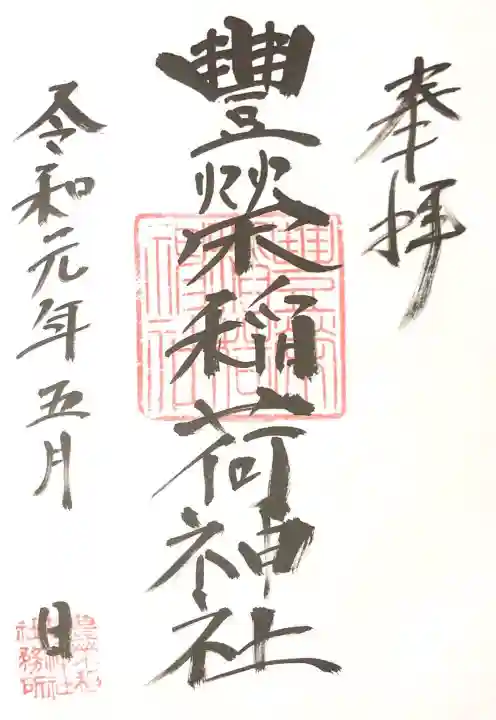 奉拝
豐榮稲荷神社
令和元年五月 日